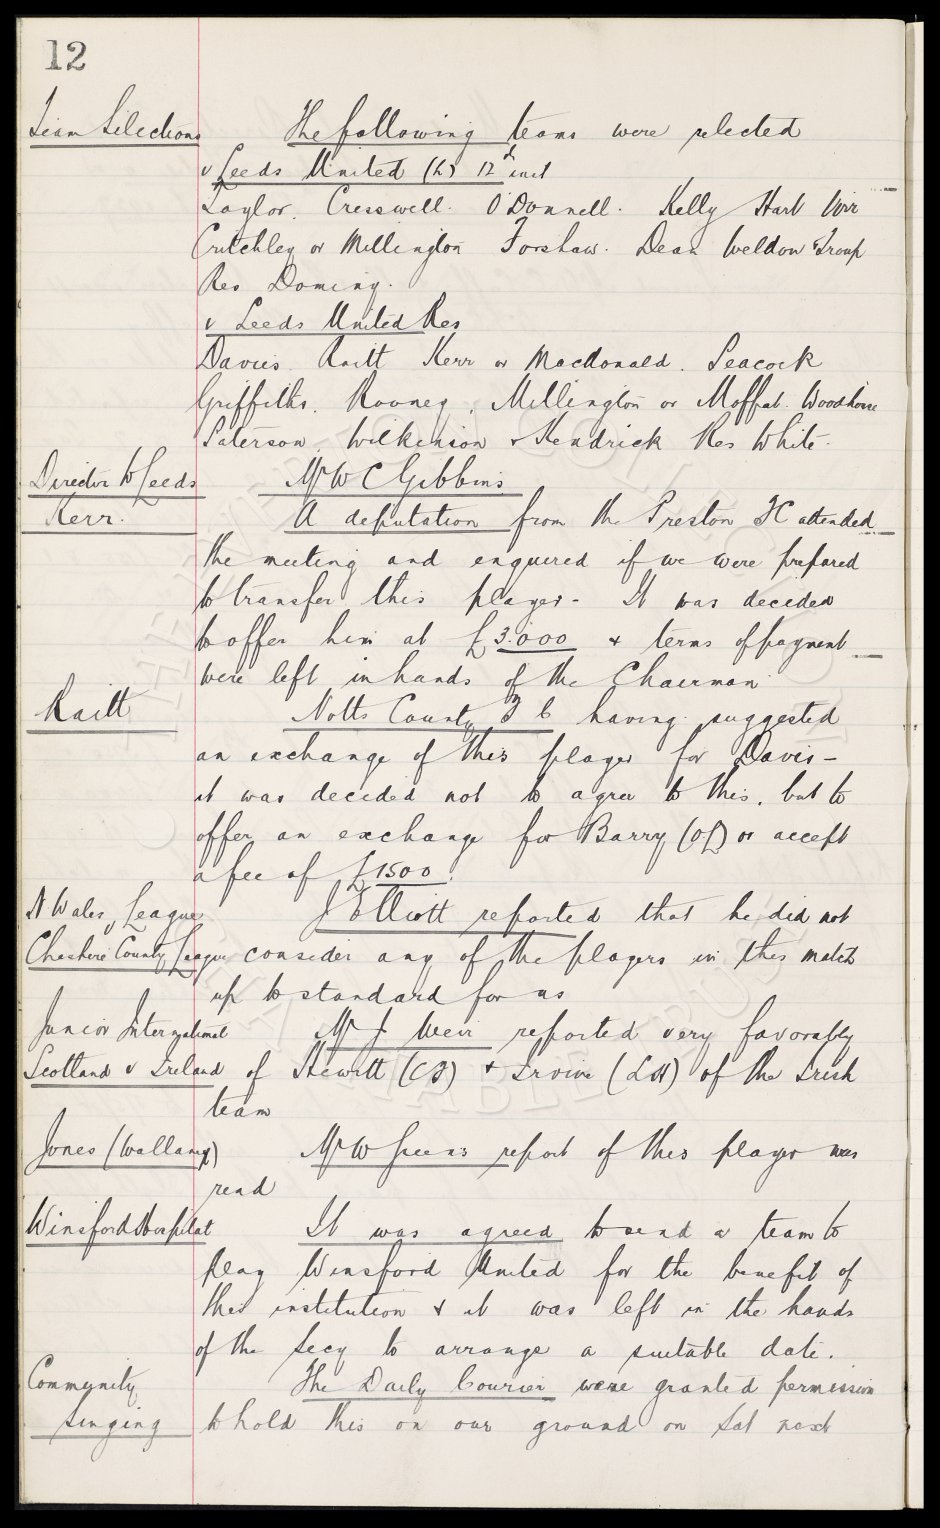 12
Team Selections The following teams were selected
v Leeds United (L) 12th inst
Taylor. Cresswell. O'Donnell. Kelly Hart Virr
Critchley or Millington Forshaw. Dean Weldon & Troup
Res Doming.
v Leeds United Res
Davies. Raitt Kerr or MacDonald. Peacock
Griffiths. Rooney, Millington or Moffat. Woodhouse
Paterson Wilkinson & Kendrick Res White.
Director to Leeds Mr W C Gibbins
Kerr. A deputation from the Preston FC attended
the meeting and enquired if we were prepared
to transfer this player - It was decided
to offer him at £3.000 & terms of payment
were left in hands of the Chairman
Raitt Notts County F C having suggested
an exchange of this player for Davis -
it was decided not to agree to this, but to
offer an exchange for Barry (OL) or accept
a fee of £1500.
N Wales League J Elliott reported that he did not
Cheshire County League consider any of the players in this match
up to standard for us
Junior International Mr J Weir reported very favorably
Scotland v Ireland of Hewitt (CF) & Irvine (LH) of the Irish
team
Jones (Wallasey) Mr W Greens report of this player was
read
Winsford Hospital It was agreed to send a team to
play Winsford United for the benefit of
this institution & it was left in the hands
of the Secy to arrange a suitable date.
Community The Daily Courier were granted permission
Singing to hold this on our ground on Sat next